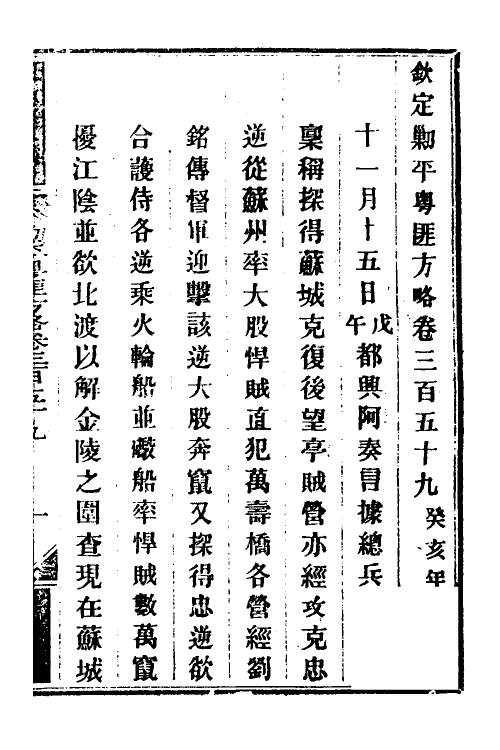 欽定勦平粵匪方略卷三百五十九 癸亥年
十一月十五日戊午都興阿奏言據總兵
稟稱探得蘇城克復後望亭賊營亦經攻克忠
逆從蘇州率大股悍賊直犯萬壽橋各營經劉
銘傳督軍迎擊該逆大股奔竄又探得忠逆欲
合護侍各逆乘火輪船並礮船率悍賊數萬竄
擾江陰並欲北渡以解金陵之圍查現在蘇城